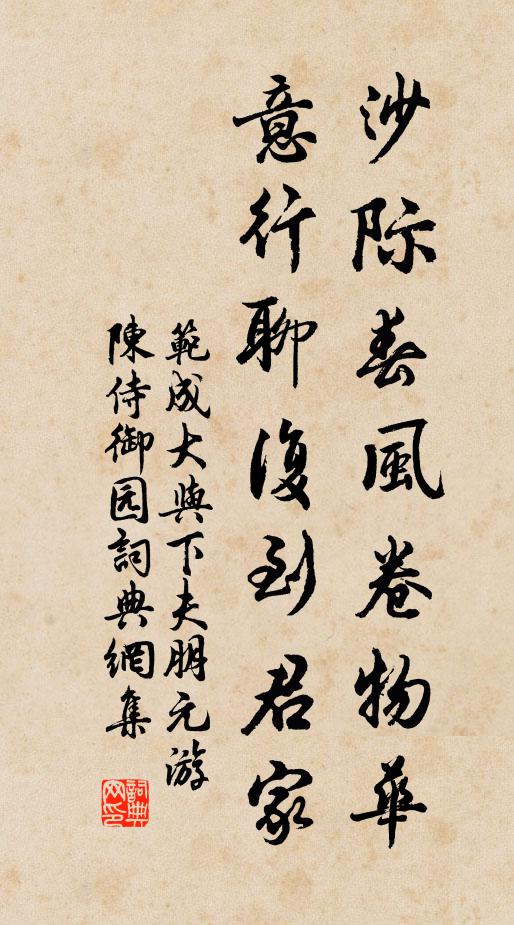 沙际春風卷物華
意行聊復到君家
範成大與下夫朋元游
陳侍御园詞典網集
詞典
网印